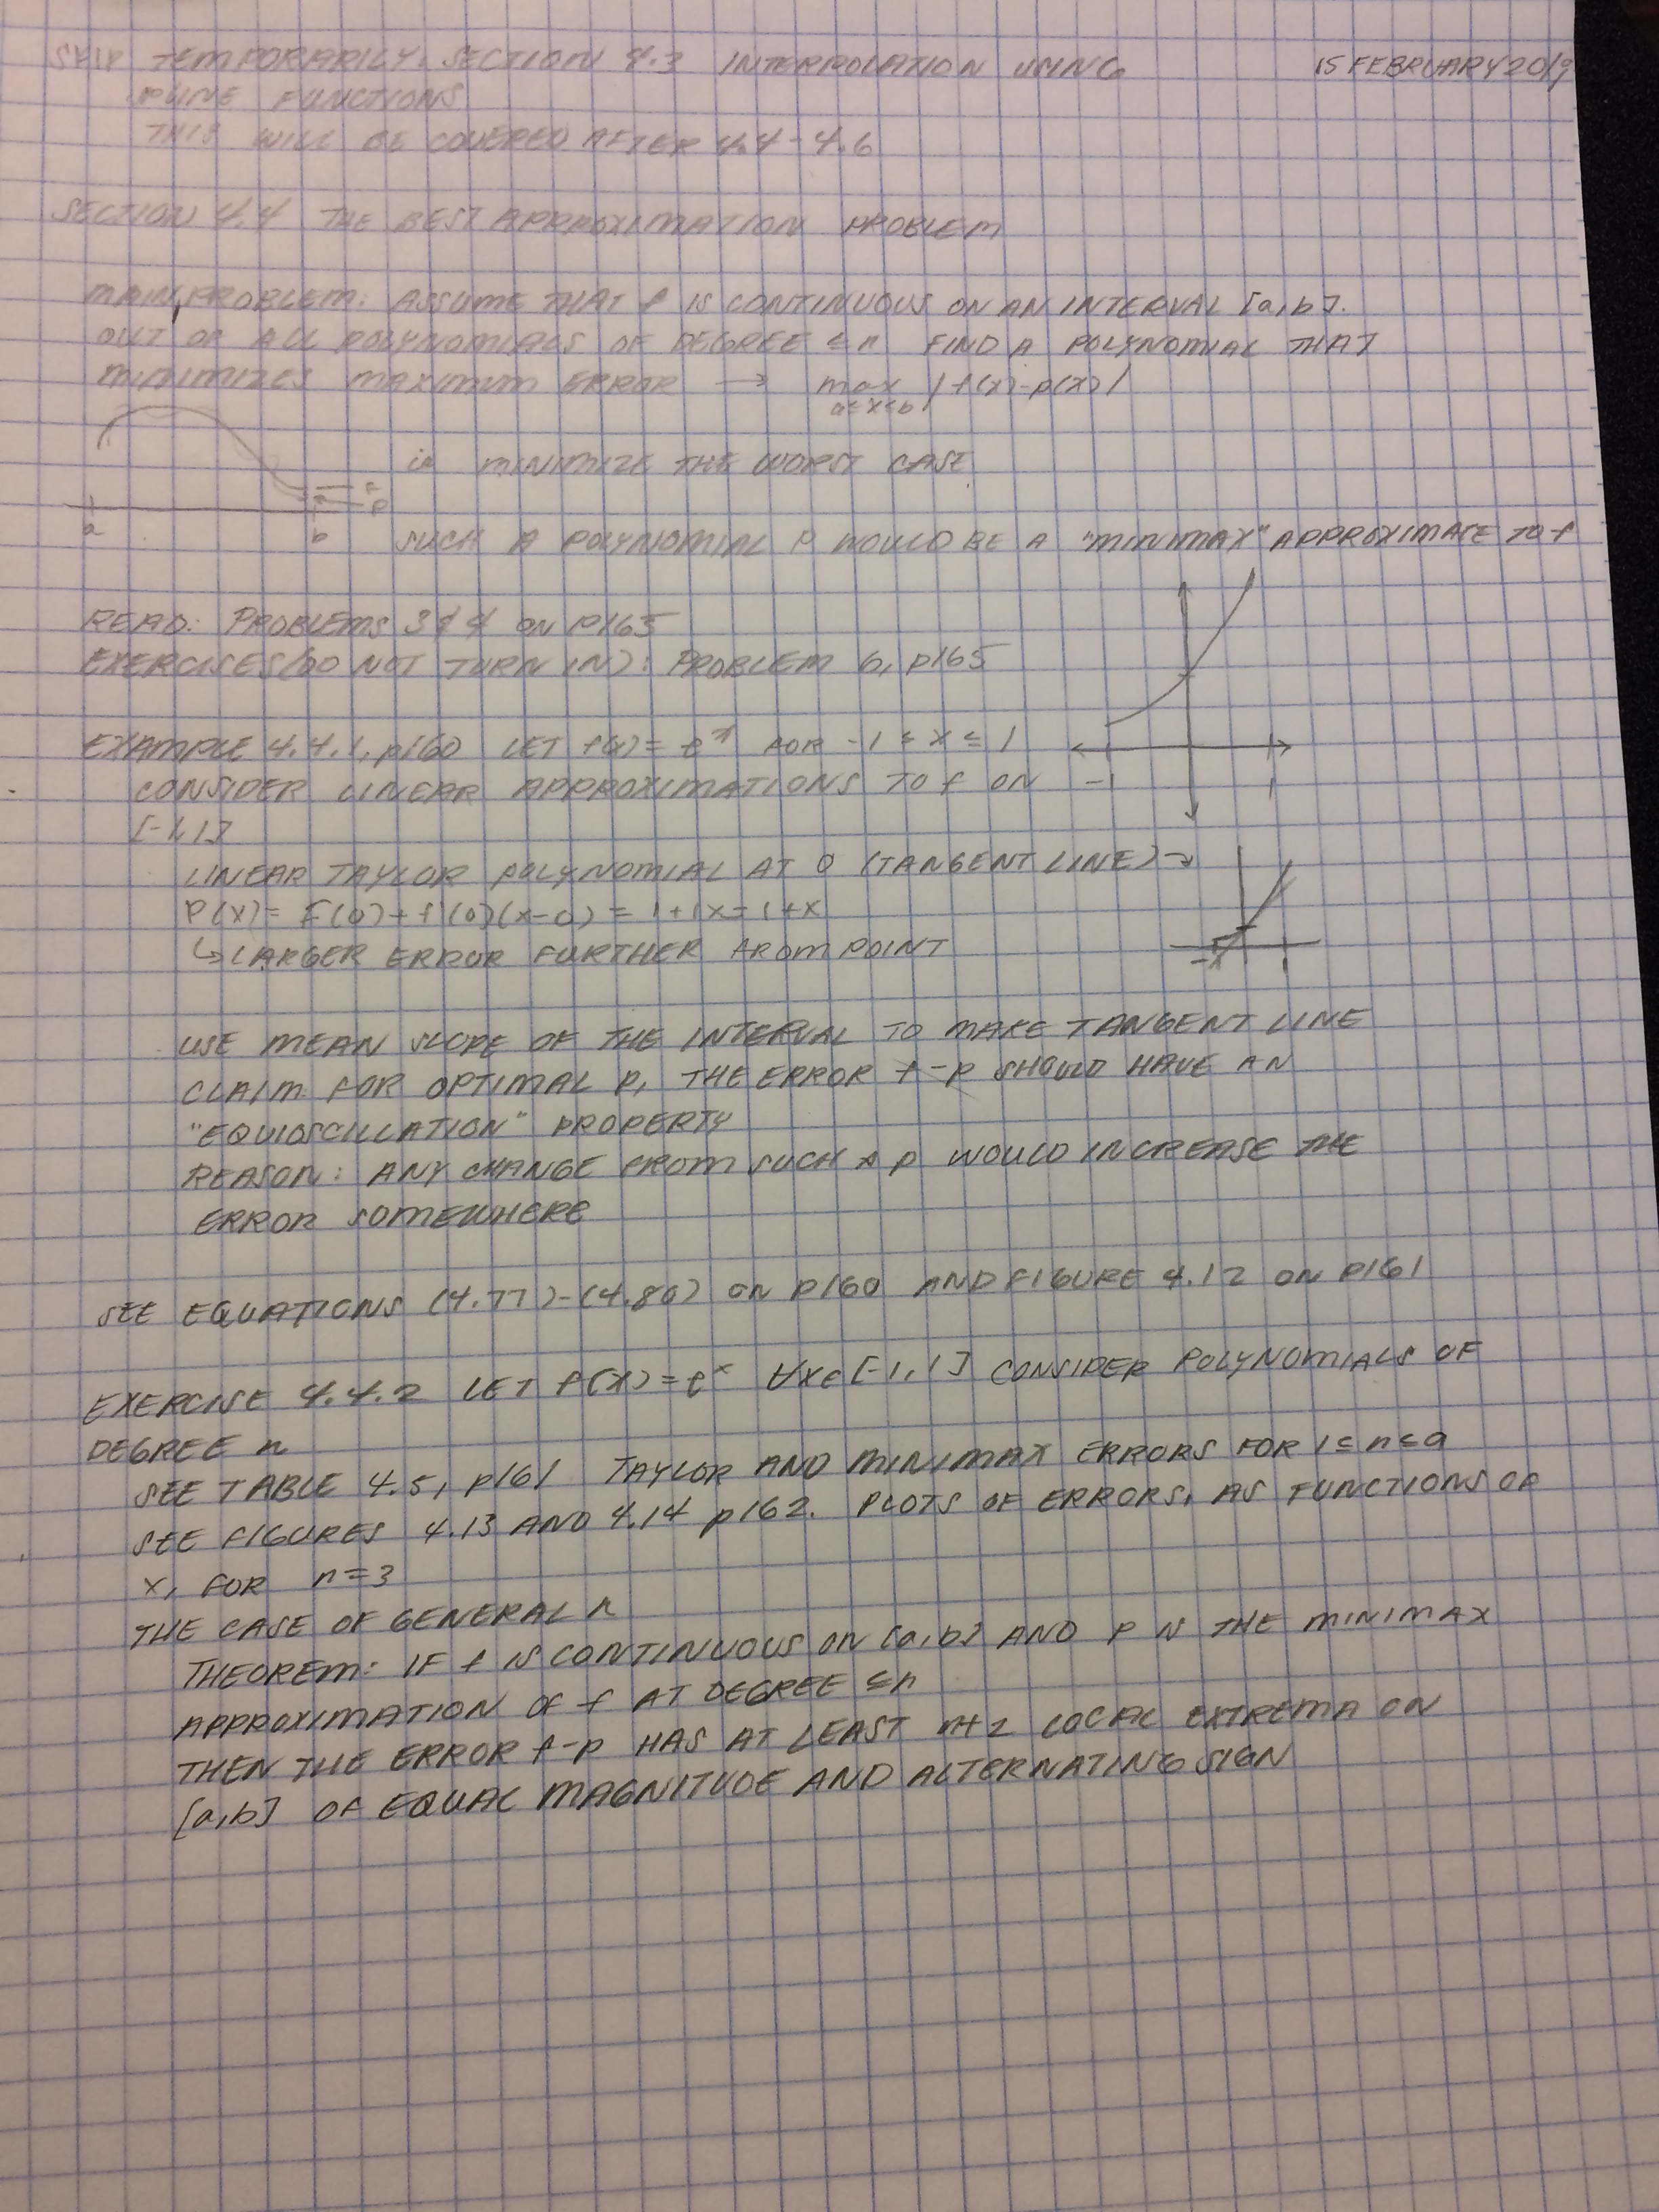 SKIP TEMPORARILY. SECTION 4.3 INTERPOLATION USING
15 FEBRUARY 2019
SPLINE FUNCTIONS
THIS WILL BE COVERED AFTER 4.4-4.6
SECTION 4.4 THE BEST APPROXIMATION PROBLEM
MAIN PROBLEM: ASSUME THAT f IS CONTINUOUS ON AN INTERVAL [a,b].
OUT OF ALL POLYNOMIALS OF DEGREE ≤ n FIND A POLYNOMIAL THAT
MINIMIZES MAXIMUM ERROR → max |f(x)-p(x)|
a≤x≤b
ie MINIMIZE THE WORST CASE
f
p
a b
SUCH A POLYNOMIAL P WOULD BE A "MINIMAX" APPROXIMATE TO f
READ: PROBLEMS 3 & 4 ON P165
EXERCISES (DO NOT TURN IN): PROBLEM 6, p165
EXAMPLE 4.4.1, p160 LET f(x) = e^x FOR -1 ≤ x ≤ 1
CONSIDER LINEAR APPROXIMATIONS TO f ON
-1 1
[-1,1]
LINEAR TAYLOR POLYNOMIAL AT 0 (TANGENT LINE) →
P(X) = F(0) + f'(0)(x-0) = 1+1x = 1+x
↳ LARGER ERROR FURTHER FROM POINT
-1 1
USE MEAN SLOPE OF THE INTERVAL TO MAKE TANGENT LINE
CLAIM: FOR OPTIMAL P, THE ERROR f-p SHOULD HAVE AN
"EQUIOSCILLATION" PROPERTY
REASON: ANY CHANGE FROM SUCH A p WOULD INCREASE THE
ERROR SOMEWHERE
SEE EQUATIONS (4.77)-(4.80) ON P160 AND FIGURE 4.12 ON P161
EXERCISE 4.4.2 LET f(x) = e^x ∀x∈[-1,1] CONSIDER POLYNOMIALS OF
DEGREE n
SEE TABLE 4.5, p161 TAYLOR AND MINIMAX ERRORS FOR 1≤n≤9
SEE FIGURES 4.13 AND 4.14 p162. PLOTS OF ERRORS, AS FUNCTIONS OF
X, FOR n=3
THE CASE OF GENERAL n
THEOREM: IF f IS CONTINUOUS ON [a,b] AND P IS THE MINIMAX
APPROXIMATION OF f AT DEGREE ≤n
THEN THE ERROR f-p HAS AT LEAST n+2 LOCAL EXTREMA ON
[a,b] OF EQUAL MAGNITUDE AND ALTERNATING SIGN